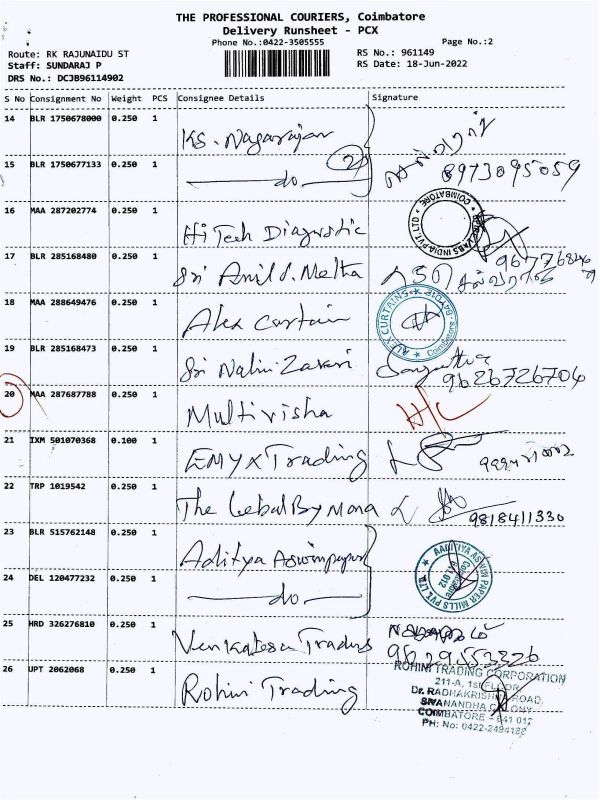 THE PROFESSIONAL COURIERS, Coimbatore
Delivery Runsheet - PCX
Phone No.:0422-3505555
Page No.:2
Route: RK RAJUNAIDU ST
RS No.: 961149
Staff: SUNDARAJ P
RS Date: 18-Jun-2022
DRS No.: DCJB96114902
S No Consignment No Weight PCS Consignee Details Signature
14 BLR 1750678000 0.250 1 KS. Nagarajan
15 BLR 1750677133 0.250 1 do 2 8973095059
16 MAA 287202774 0.250 1 Hi Tech Diagnostic
17 BLR 285168480 0.250 1 Sri Anil S. Melta
18 MAA 288649476 0.250 1 Alex Curtain
ALEX CURTAINS Coimbatore
19 BLR 285168473 0.250 1 Sri Nalini Zaveri
9626726704
20 MAA 287687788 0.250 1 Multivisha H/C
21 IXM 501070368 0.100 1 EMYX Trading
22 TRP 1019542 0.250 1 The
9818411330
23 BLR 515762148 0.250 1 Aditya Aswinpaper
AADITIYA ASWIN PAPER MILLS PVT. LTD. Coimbatore 641 012
24 DEL 120477232 0.250 1 do
25 HRD 326276810 0.250 1 Venkatesa Traders
26 UPT 2062068 0.250 1 Rohini Trading
ROHINI TRADING CORPORATION
211-A, 1st FLOOR
Dr. RADHAKRISHNA ROAD,
SIVANANDHA COLONY
COIMBATORE - 641 012
PH: No: 0422-2494188